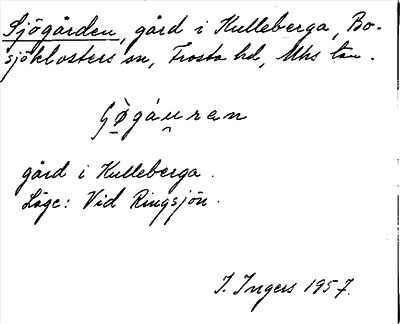 Sjögården, gård i Kulleberga, Bo-
sjöklosters sn, Frosta hd, Mhs län.
gård i Kulleberga.
Läge: Vid Ringsjön.
I. Ingers 1957.